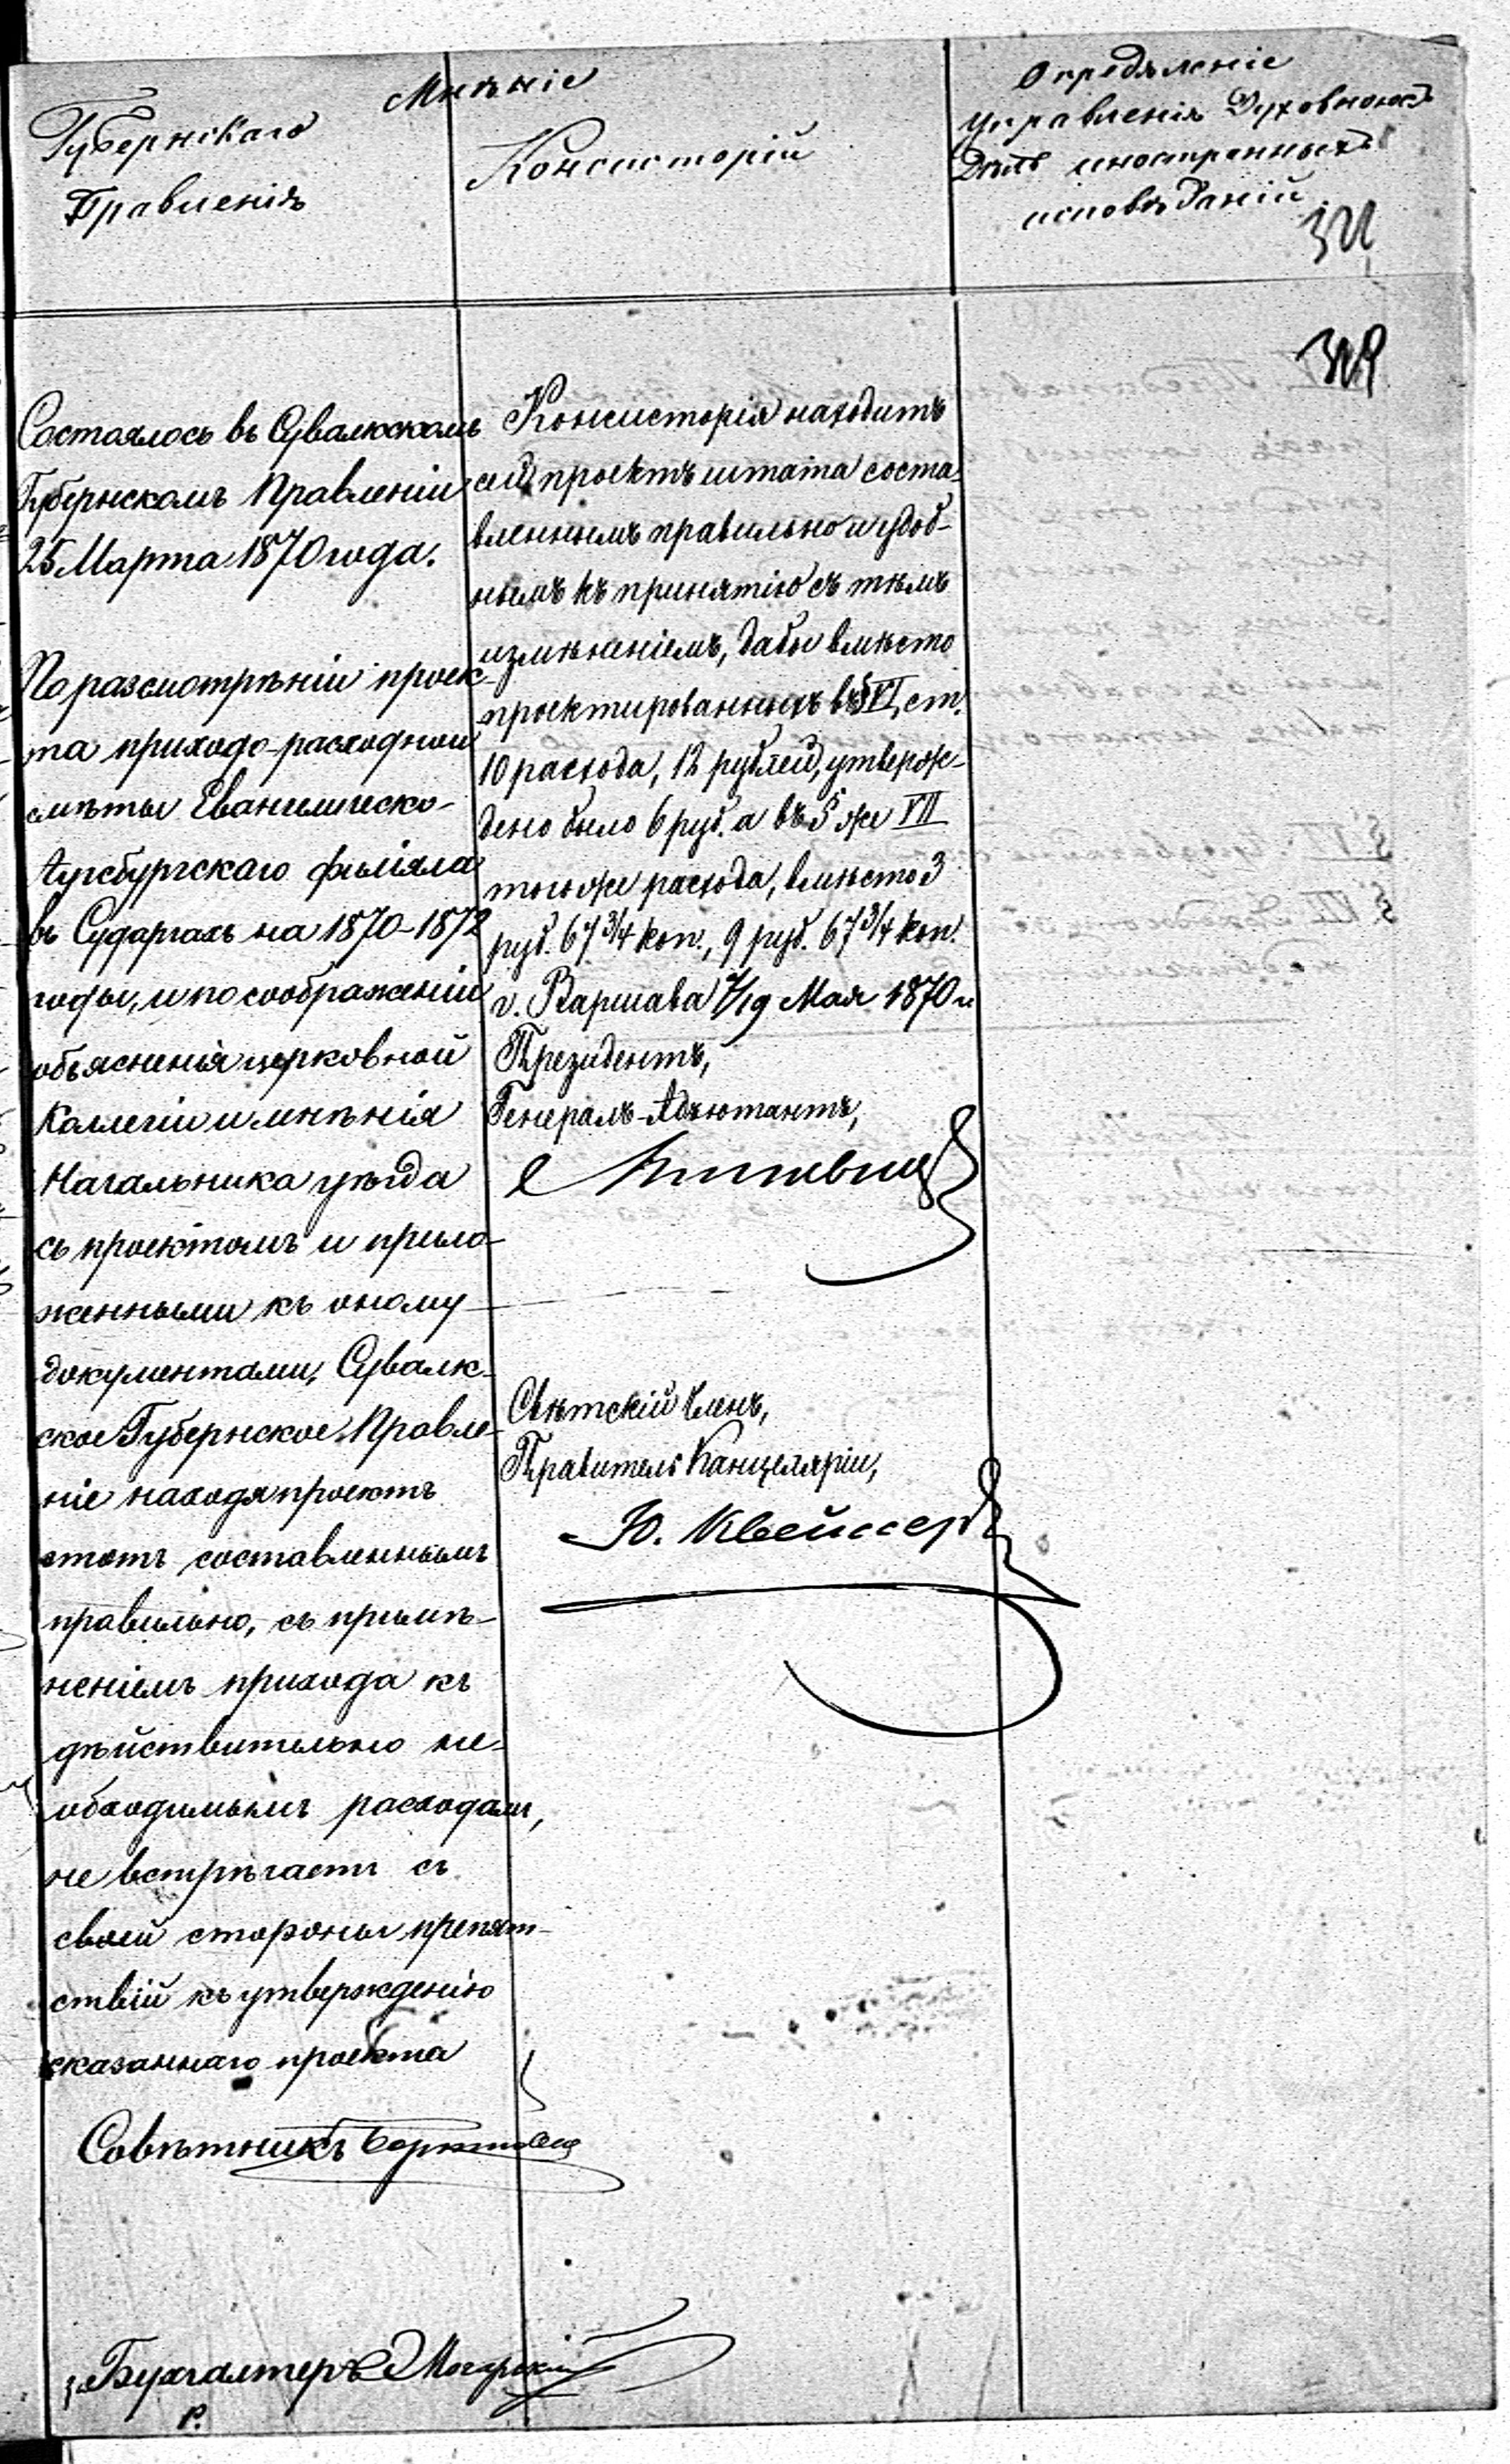 Мнѣніе
Губернскаго
Правленія
Консисторіи
Опредѣленіе
Управленія Духовныхъ
Дѣлъ иностранныхъ
исповѣданій
Состоялось въ Сувалкскомъ
Губернскомъ Правленіи
25 Марта 1870 года.
По разсмотрѣніи проек-
та приходо-расходной
смѣты Евангелическо-
Аугсбургскаго филіяла
въ Сударгахъ на 1870-1872
годы, и по соображеніи
объясненія церковной
Коллегіи и мнѣнія
Начальника уѣзда
съ проектомъ и прило-
женными къ оному
документами, Сувалк-
ское Губернское Правле-
ніе находя проектъ
этотъ составленнымъ
правильно, съ примѣ-
неніемъ прихода къ
дѣйствительно не-
обходимымъ расходамъ,
не встрѣчаетъ съ
своей стороны препят-
ствій къ утвержденію
сказаннаго проекта
Совѣтникъ
Бухгалтеръ
Консисторія находитъ
сей проектъ штата соста-
вленнымъ правильно и удоб-
нымъ къ принятію съ тѣмъ
измѣненіемъ, дабы вмѣсто
проектированныхъ въ § VI, ст.
10 расхода, 12 рублей, утверж-
дено было 6 руб. а въ § же VII
того же расхода, вмѣсто 3
руб. 67 3/4 коп., 9 руб. 67 3/4 коп.
г. Варшава 7/19 Мая 1870 г.
Президентъ,
Генералъ-Адъютантъ,
Свѣтскій Членъ,
Правитель Канцеляріи,